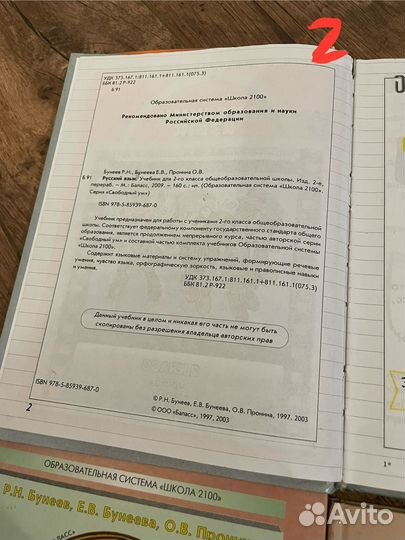 2
УДК 373.167.1:811.161.1+811.161.1(075.3)
ББК 81.2 Р-922
Б 91
Образовательная система «Школа 2100»
Рекомендовано Министерством образования и науки
Российской Федерации
Бунеев Р.Н., Бунеева Е.В., Пронина О.В.
Б 91 Русский язык. Учебник для 2-го класса общеобразовательной школы. Изд. 2-е,
перераб. – М.: Баласс, 2009. – 160 с.: ил. (Образовательная система «Школа 2100».
Серия «Свободный ум»)
ISBN 978-5-85939-687-0
Учебник предназначен для работы с учениками 2-го класса общеобразовательной
школы. Соответствует федеральному компоненту государственного стандарта общего
образования, является продолжением непрерывного курса, частью авторской серии
«Свободный ум» и составной частью комплекта учебников Образовательной системы
«Школа 2100».
Содержит языковые материалы и систему упражнений, формирующие речевые
умения, чувство языка, орфографическую зоркость, языковые и правописные навыки
и умения.
УДК 373.167.1:811.161.1+811.161.1(075.3)
ББК 81.2 Р-922
Данный учебник в целом и никакая его часть не могут быть
скопированы без разрешения владельца авторских прав
ISBN 978-5-85939-687-0
© Р.Н. Бунеев, Е.В. Бунеева, О.В. Пронина, 1997, 2003
© ООО «Баласс», 1997, 2003
2
1*
ОБРАЗОВАТЕЛЬНАЯ СИСТЕМА «ШКОЛА 2100»
Р.Н. Бунеев, Е.В. Бунеева, О.В. Пронина
Avito